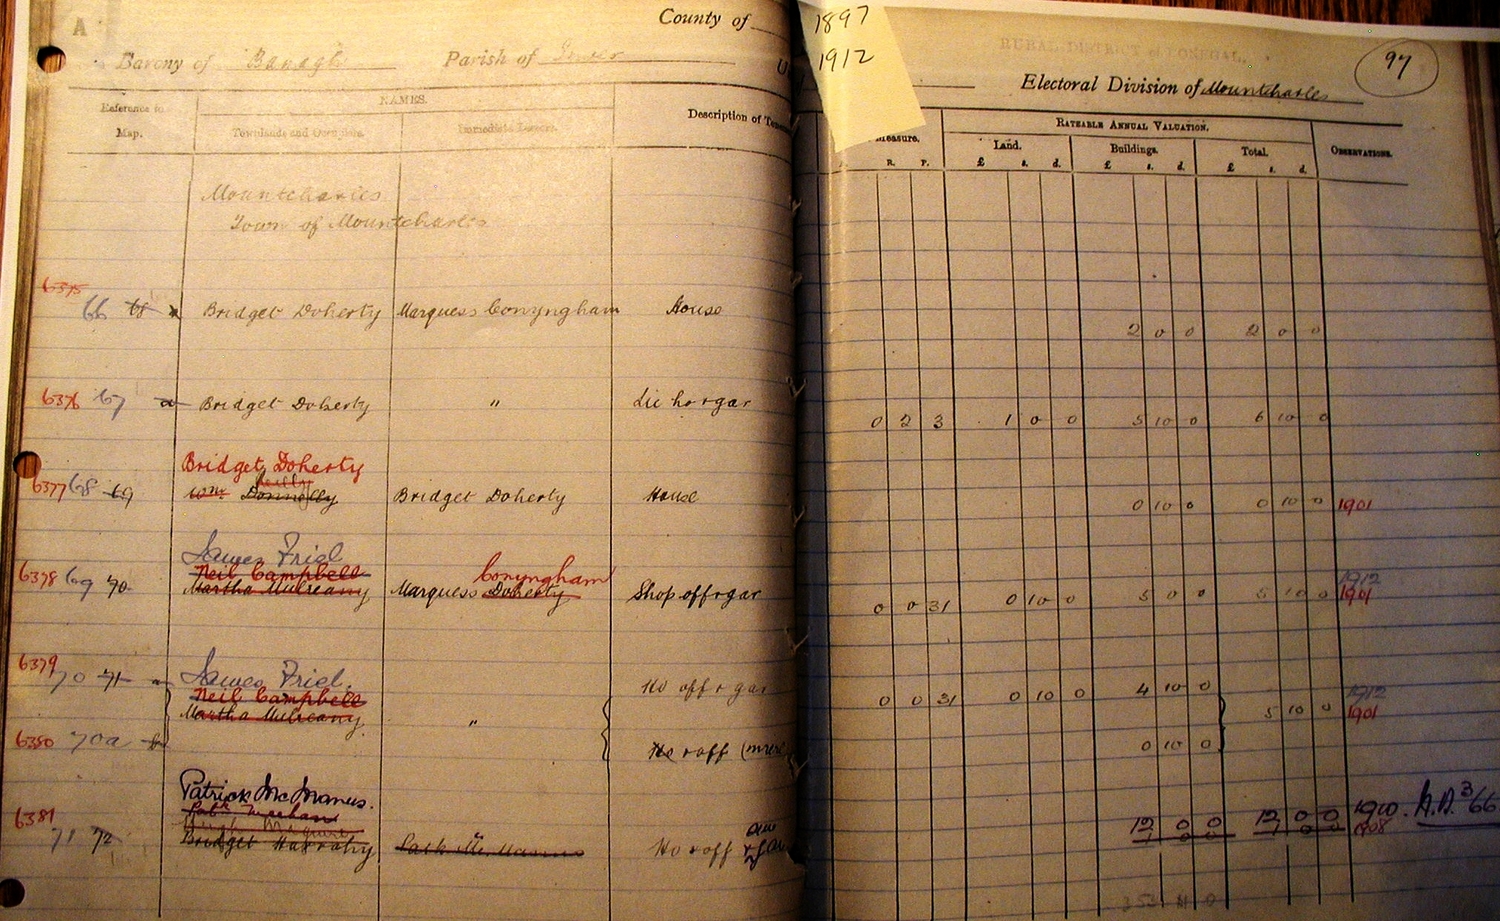 A
County of
1897
1912
RURAL DISTRICT of DONEGAL.
97
Barony of Banagh Parish of Inver
Electoral Division of Mountcharles
Reference to Map.
NAMES.
Townlands and Occupiers.
Immediate Lessors.
Description of
Measure.
R. P.
RATEABLE ANNUAL VALUATION.
Land.
Buildings.
Total.
£ s. d. £ s. d. £ s. d.
OBSERVATIONS.
Mountcharles
Town of Mountcharles
6375
66 68 Bridget Doherty Marquess Conyngham House 2 0 0 2 0 0
6376 67 a Bridget Doherty " Lic ho + gar 0 2 3 1 0 0 5 10 0 6 10 0
Bridget Doherty
Reilly
6377 68 69 Wm. Donnolly Bridget Doherty House 0 10 0 0 10 0 1901
James Friel
Neil Campbell Conyngham 1912
6378 69 70 Martha Mulreany Marquess Doherty Shop off + gar 0 0 31 0 10 0 5 0 0 5 10 0 1901
6379 70 71 a James Friel. Ho off + gar 0 0 31 0 10 0 4 10 0 1912
Neil Campbell
Martha Mulreany " 5 10 0 1901
6380 70a b Ho + off 0 10 0
Patrick McManus.
6381
12 0 0 12 0 0 1910. 1908
71 72 Bridget Harrahy Ho + off 7 0 0 7 0 0